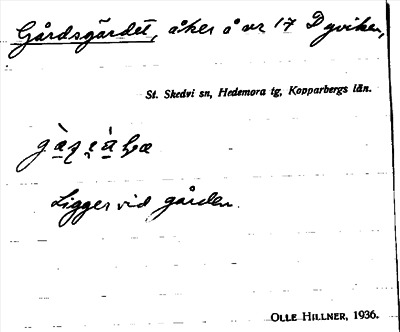 Gårdsgärdet, åker å nr 17 Dyviken,
St. Skedvi sn, Hedemora tg, Kopparbergs län.
Ligger vid gården.
OLLE HILLNER, 1936.